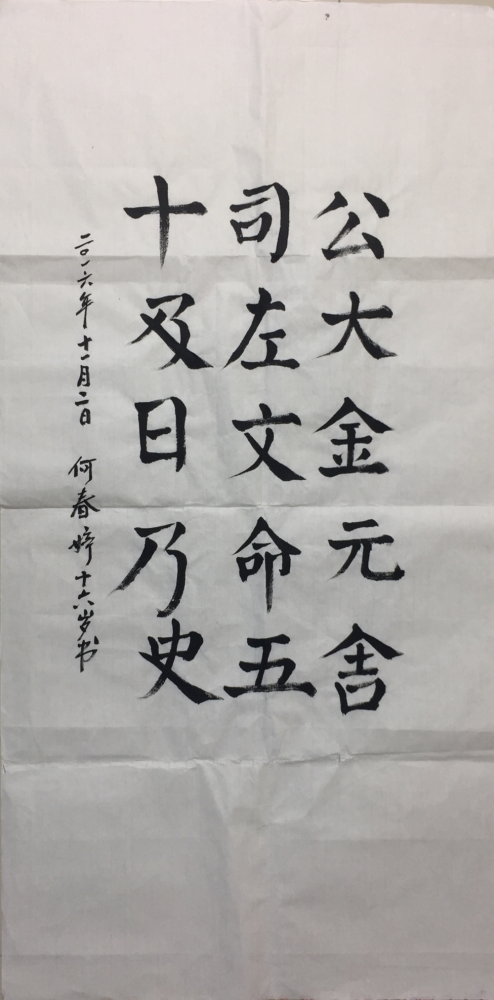 公大金元舍
司左文命五
十及日乃史
二〇一六年十一月二日 何春婷十六岁书